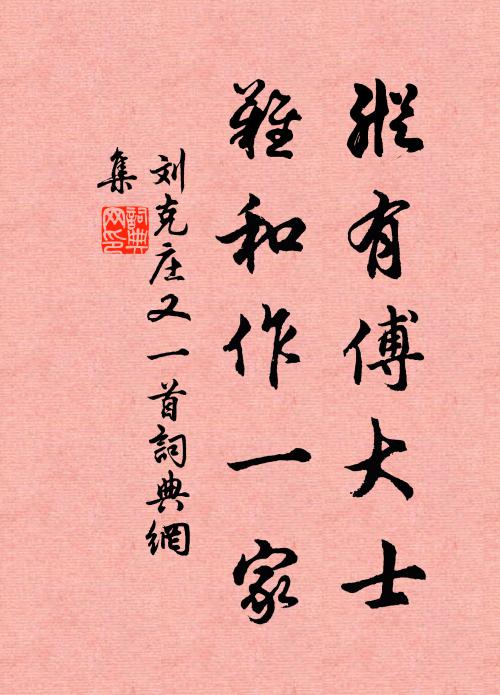 縱有傅大士
難和作一家
刘克庄又一首詞典網
集
詞典
网印